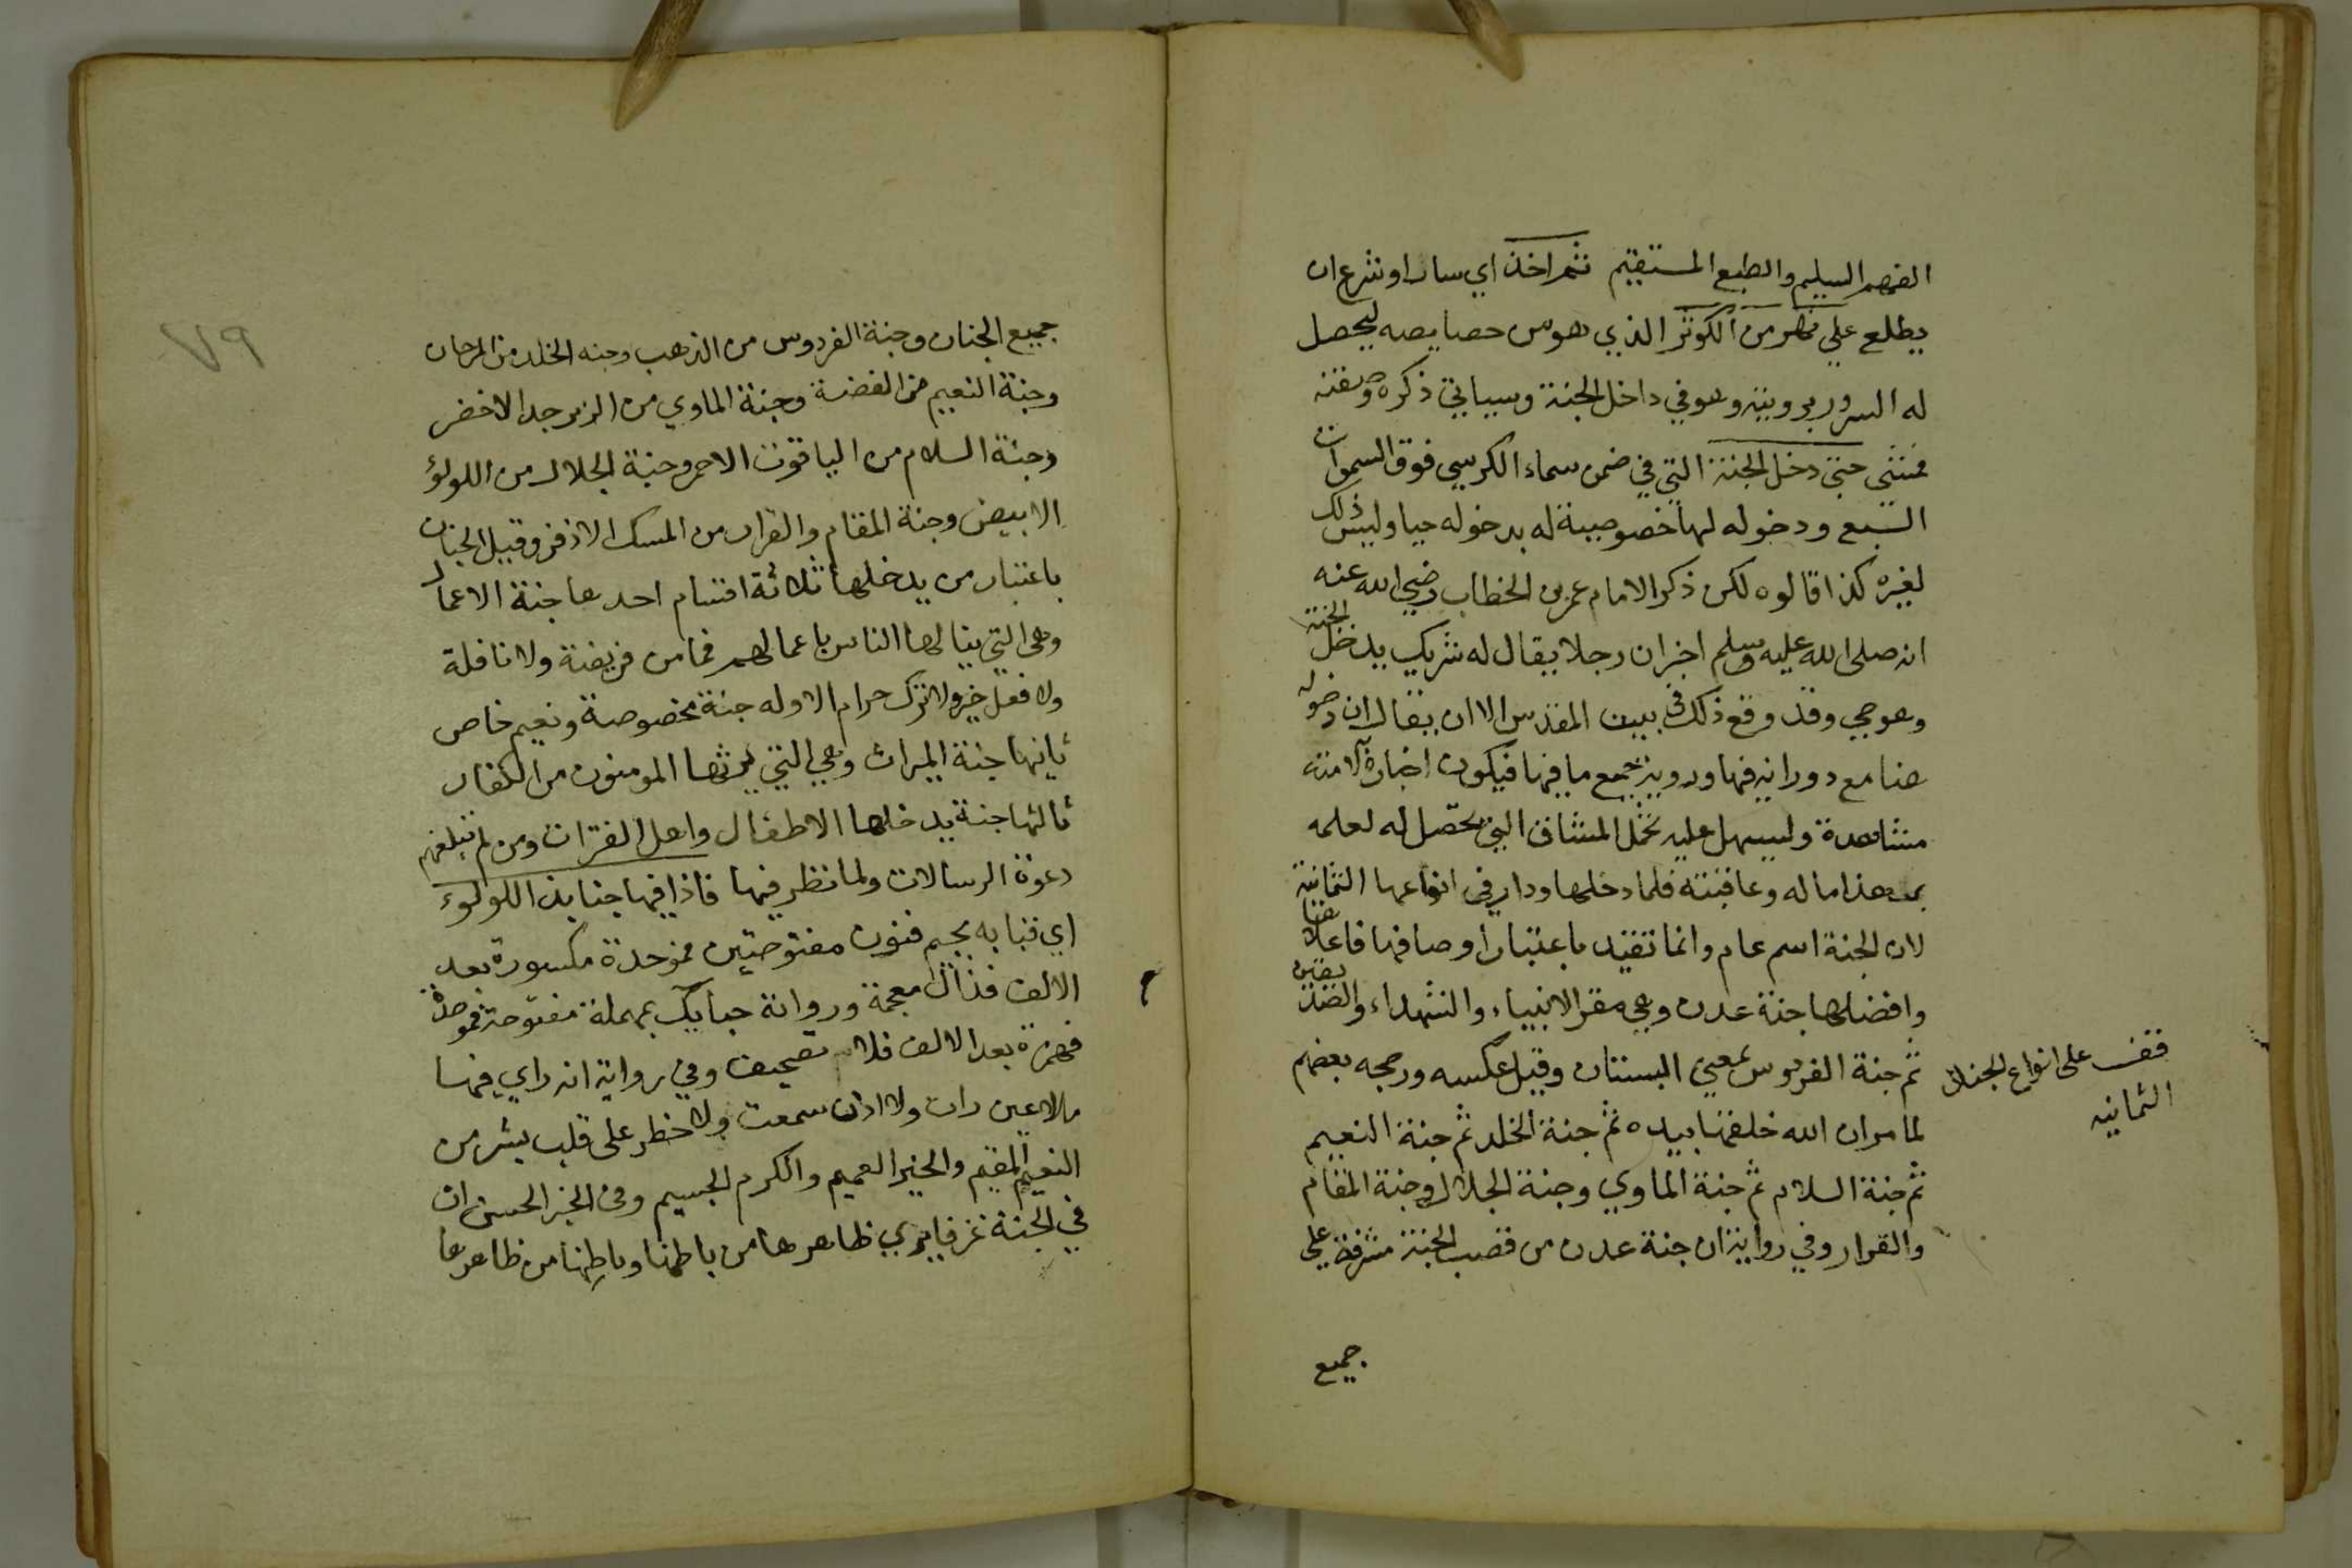 الفهم السليم والطبع المستقيم ثم اخذ اي سار او شرع ان
يطلع علي نهر من الكوثر الذي هو من خصايصه ليحصل
له السرور برويته وهو في داخل الجنة وسياتي ذكره وصفته
فمشي حتي دخل الجنة التي في ضمن سماء الكرسي فوق السموات
السبع ودخوله لها خصوصية له بدخوله حيا وليس ذلك
لغيره كذا قالوه لكن ذكر الامام عمر بن الخطاب رضي الله عنه
انه صلى الله عليه وسلم اخبر ان رجلا يقال له شريك يدخل الجنة
وهو حي وقد وقع ذلك في بيت المقدس الا ان يقال ان دخوله
هنا مع دورانه فيها وروية جميع ما فيها فيكون اخباره لامته
مشاهدة وليسهل عليه تحمل المشاق التي تحصل له لعلمه
بان هذا ماله وعاقبته فلما دخلها ودار في انواعها الثمانية
لان الجنة اسم عام وانما تقيد باعتبار اوصافها فاعلاها
وافضلها جنة عدن وهي مقر الانبياء والشهداء والصديقين
ثم جنة الفردوس بمعني البستان وقيل عكسه ورجحه بعضهم
لما مر ان الله خلقها بيده ثم جنة الخلد ثم جنة النعيم
ثم جنة السلام ثم جنة الماوي وجنة الجلال وجنة المقام
والقرار وفي رواية ان جنة عدن من قصب الجنة مشرفة علي
جميع
قف على انواع الجنان
الثمانيه
٧٩
جميع الجنان وجنة الفردوس من الذهب وجنه الخلد من المرجان
وجنة النعيم من الفضة وجنة الماوي من الزبرجد الاخضر
وجنة السلام من الياقوت الاحمر وجنة الجلال من اللولؤ
الابيض وجنة المقام والقرار من المسك الاذفر وقيل الجنان
باعتبار من يدخلها ثلاثة اقسام احدها جنة الاعمال
وهي التي ينالها الناس باعمالهم فما من فريضة ولا نافلة
ولا فعل خير ولا ترك حرام الا وله جنة مخصوصة ونعيم خاص
ثانيها جنة الميراث وهي التي يرثها المومنون من الكفار
ثالثها جنة يدخلها الاطفال واهل الفترات ومن لم تبلغهم
دعوة الرسالات ولما نظر فيها فاذا فيها جنابذ اللولوء
اي قبابه بجيم فنون مفتوحتين فموحدة مكسورة بعد
الالف فذال معجمة ورواية حبايل بمهملة مفتوحة فموحدة
فهمزة بعد الالف فلام تصحيف وفي رواية انه راي فيها
ما لا عين رات ولا اذن سمعت ولا خطر على قلب بشر من
النعيم المقيم والخير العميم والكرم الجسيم وفي الخبر الحسن ان
في الجنة غرفا يري ظاهرها من باطنها وباطنها من ظاهرها